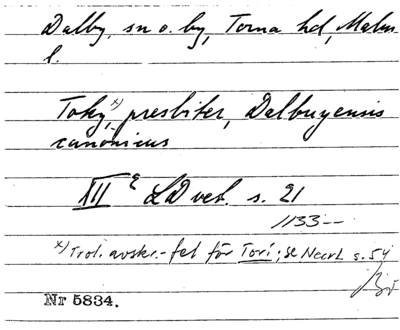 Dalby, sn o. by, Torna hd, Malm.
l.
Toky x), presbiter, Dalbuyensis
canonicus
XII e LD vet. s. 21
1133--
x) Trol. avskr.-fel för Tori; se Necrl s. 54
Nr 5834.